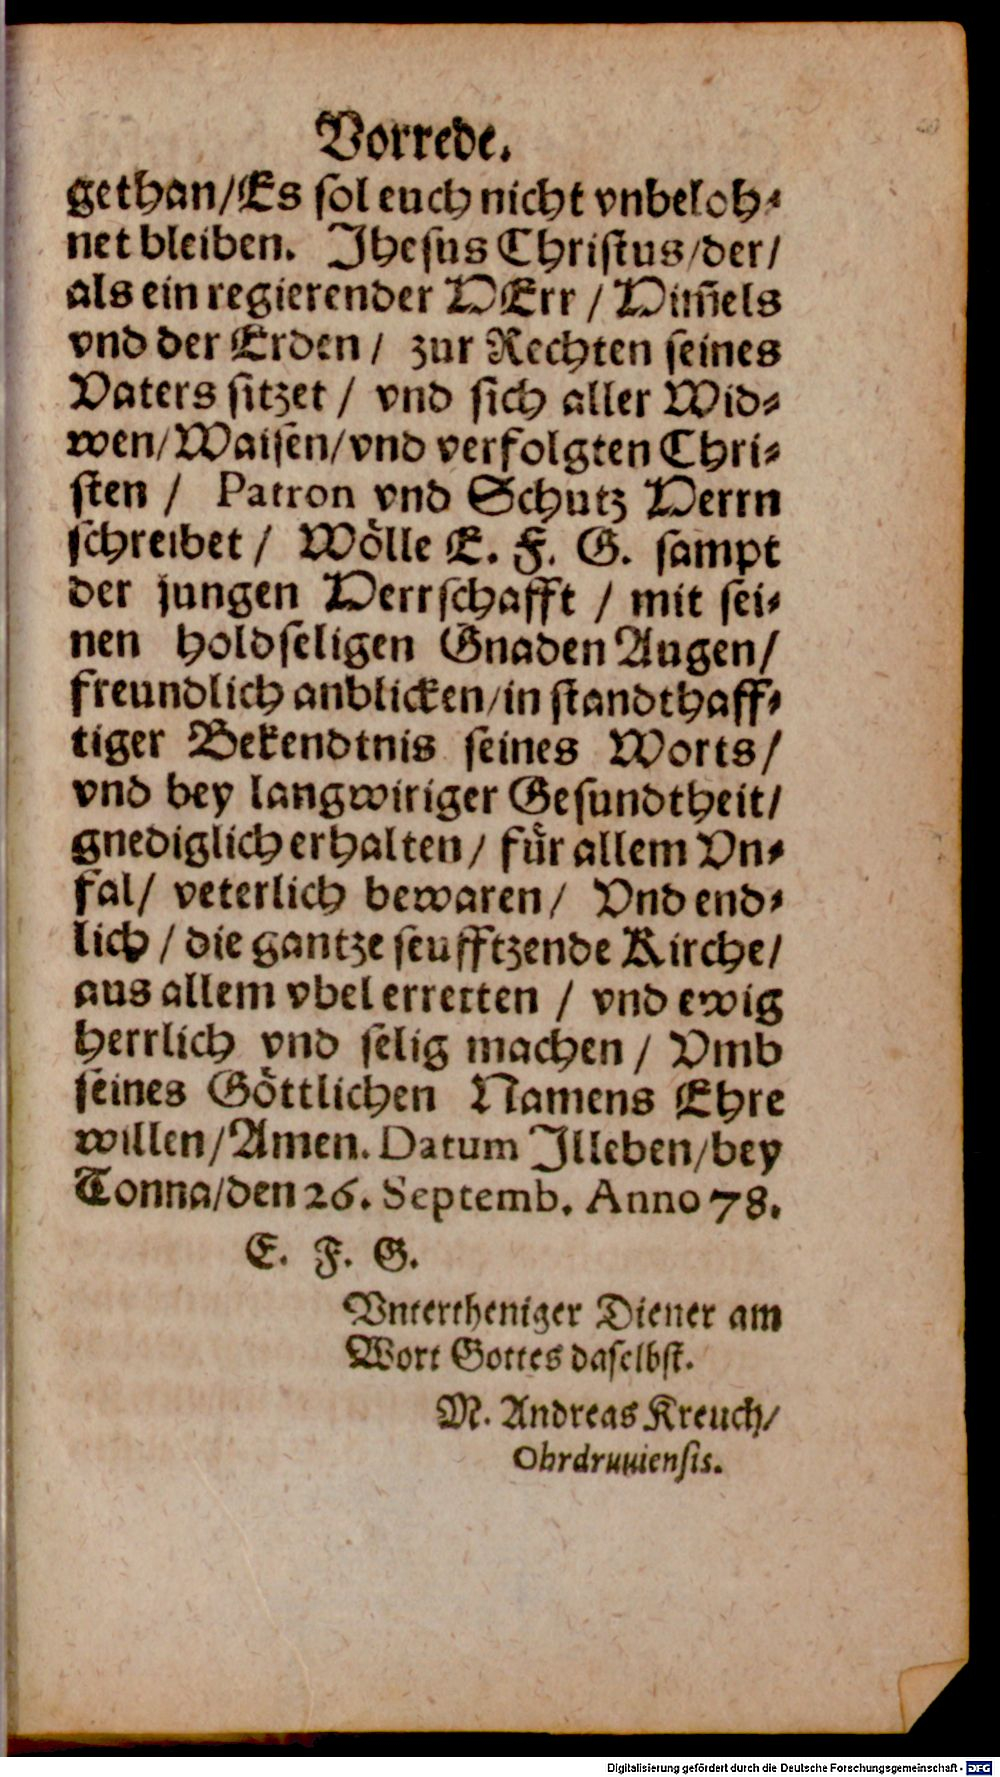 Vorrede.
gethan/Es sol euch nicht vnbeloh⸗
net bleiben. Jhesus Christus/der/
als ein regierender HErr / Him̃els
vnd der Erden / zur Rechten seines
Vaters sitzet / vnd sich aller Wid⸗
wen/Waisen/vnd verfolgten Chri⸗
sten / Patron vnd Schutz Herrn
schreibet / Wölle E. F. G. sampt
der jungen Herrschafft / mit sei⸗
nen holdseligen Gnaden Augen/
freundlich anblicken/in standthaff⸗
tiger Bekendtnis seines Worts/
vnd bey langwiriger Gesundtheit/
gnediglich erhalten / für allem Vn⸗
fal/ veterlich bewaren / Vnd end⸗
lich / die gantze seufftzende Kirche/
aus allem vbel erretten / vnd ewig
herrlich vnd selig machen / Vmb
seines Göttlichen Namens Ehre
willen/Amen. Datum Jlleben/bey
Tonna/den 26. Septemb. Anno 78.
E. F. G.
Vntertheniger Diener am
Wort Gottes daselbst.
M. Andreas Kreuch/
Ohrdruuiensis.
Digitalisierung gefördert durch die Deutsche Forschungsgemeinschaft - DFG